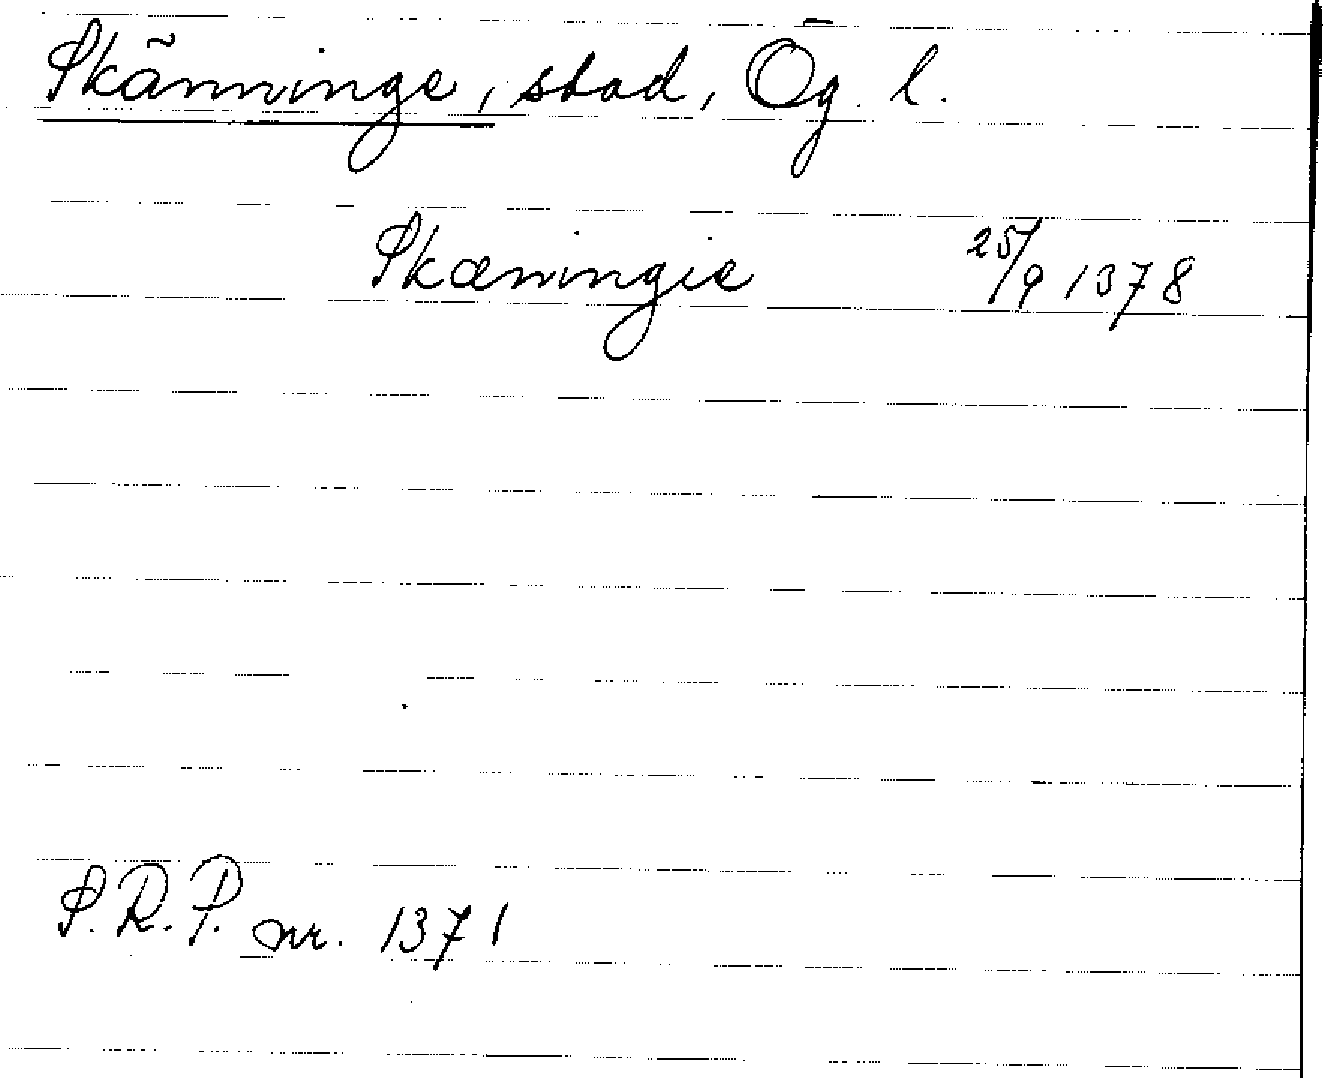 Skänninge, stad, Ög. l.
Skæningie 25/9 1378
S.R.P. nr. 1371